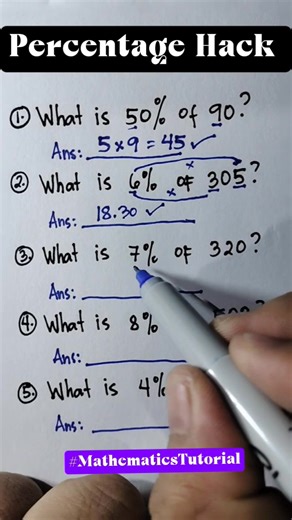 Percentage Hack
①. What is 50% of 90?
Ans: 5 x 9 = 45 ✓
②. What is 6% of 305?
x
x
Ans: 18.30 ✓
③. What is 7% of 320?
Ans:
④. What is 8%
Ans:
⑤. What is 4%
Ans:
#MathematicsTutorial